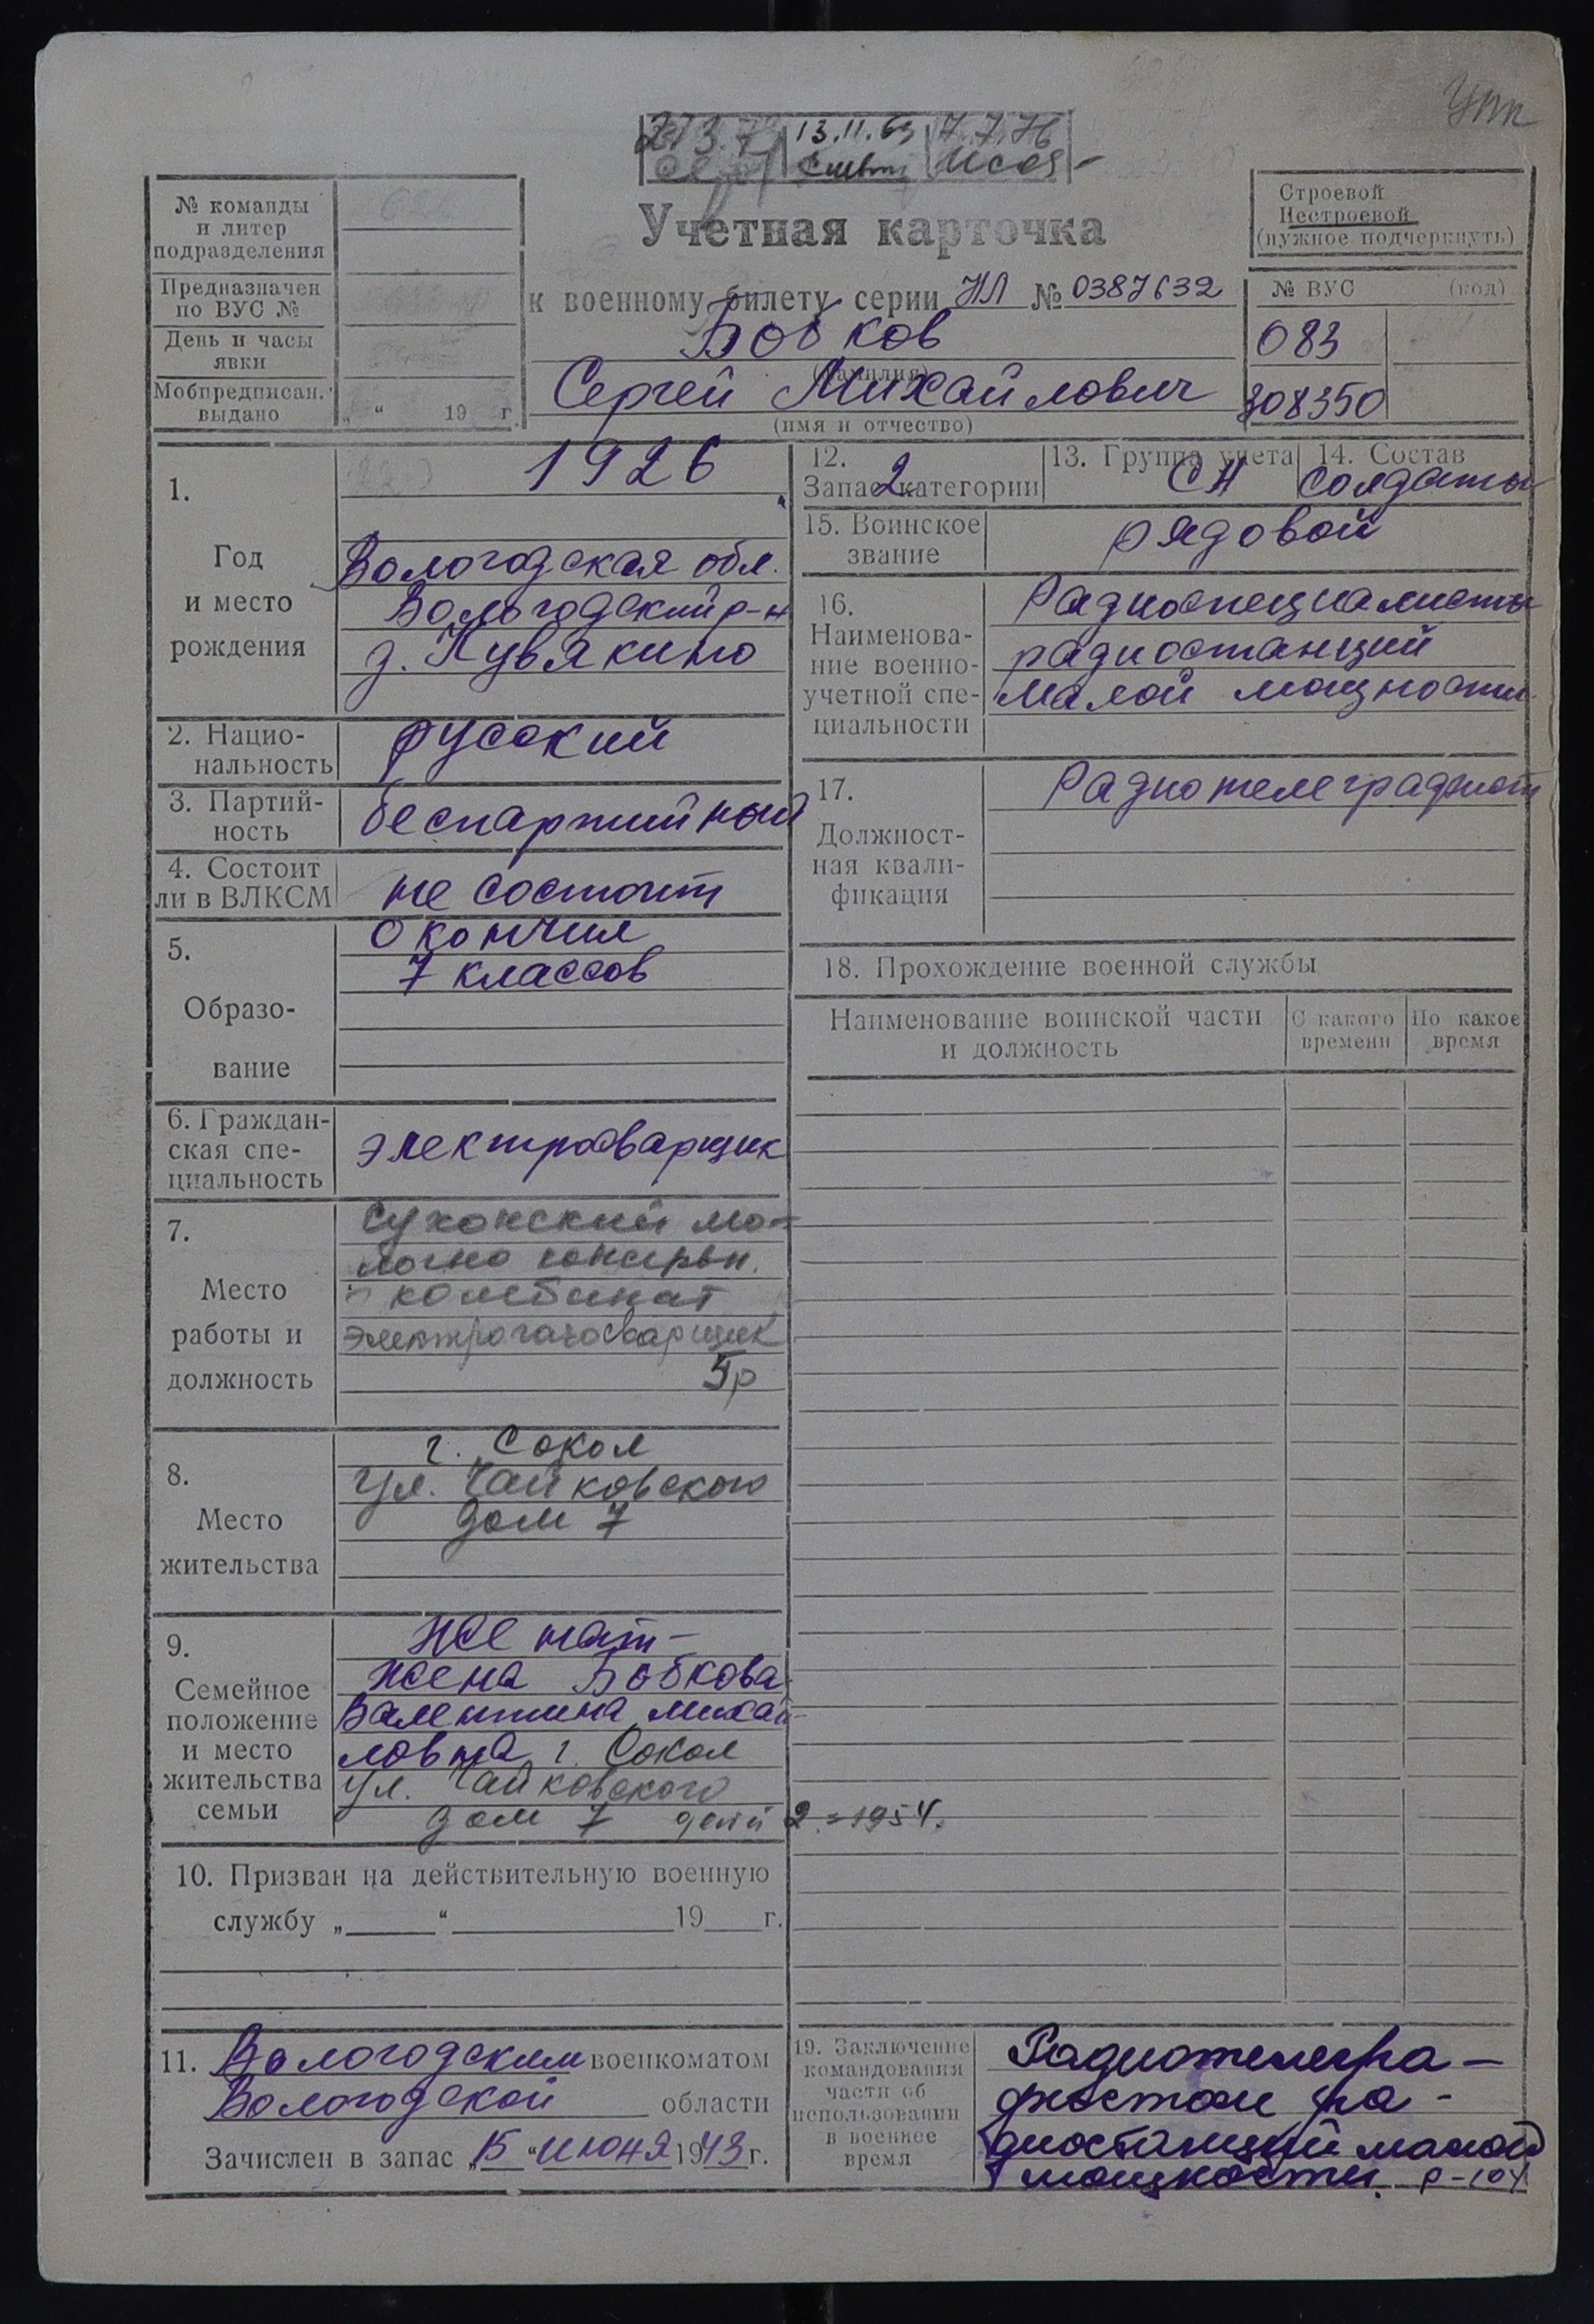 Упк
13.11.69 7.7.76
Учетная карточка
к военному билету серии НЛ № 0387632
Бобков
(фамилия)
Сергей Михайлович
(имя и отчество)
№ команды
и литер
подразделения
Предназначен
по ВУС №
День и часы
явки
Мобпредписан.
выдано
„ “ 19 г.
Строевой
Нестроевой
(нужное подчеркнуть)
№ ВУС (код)
083
308350
1.
Год
и место
рождения
1926
Вологодская обл.
Вологодский р-н
д. Кувякино
2. Нацио-
нальность
русский
3. Партий-
ность
беспартийный
4. Состоит
ли в ВЛКСМ
не состоит
5.
Образо-
вание
Окончил
7 классов
6. Граждан-
ская спе-
циальность
электросварщик
7.
Место
работы и
должность
Сухонский мо-
лочно консервн.
комбинат
электрогазосварщик
5р
8.
Место
жительства
г. Сокол
ул. Чайковского
дом 7
9.
Семейное
положение
и место
жительства
семьи
Женат -
жена Бобкова
Валентина Михай-
ловна г. Сокол
ул. Чайковского
дом 7 детей 2 = 1954.
10. Призван на действительную военную
службу „ “ 19 г.
11. Вологодским военкоматом
Вологодской области
Зачислен в запас „15 “ июня 1943 г.
12.
Запас 2 категории
13. Группа учета
СА
14. Состав
солдаты
15. Воинское
звание
рядовой
16.
Наименова-
ние военно-
учетной спе-
циальности
Радиоспециалисты
радиостанций
малой мощности
17.
Должност-
ная квали-
фикация
Радиотелеграфист
18. Прохождение военной службы
Наименование воинской части
и должность
С какого
времени
По какое
время
19. Заключение
командования
части об
использовании
в военное
время
Радиотелегра-
фистом ра-
диостанций малой
мощности. Р-104